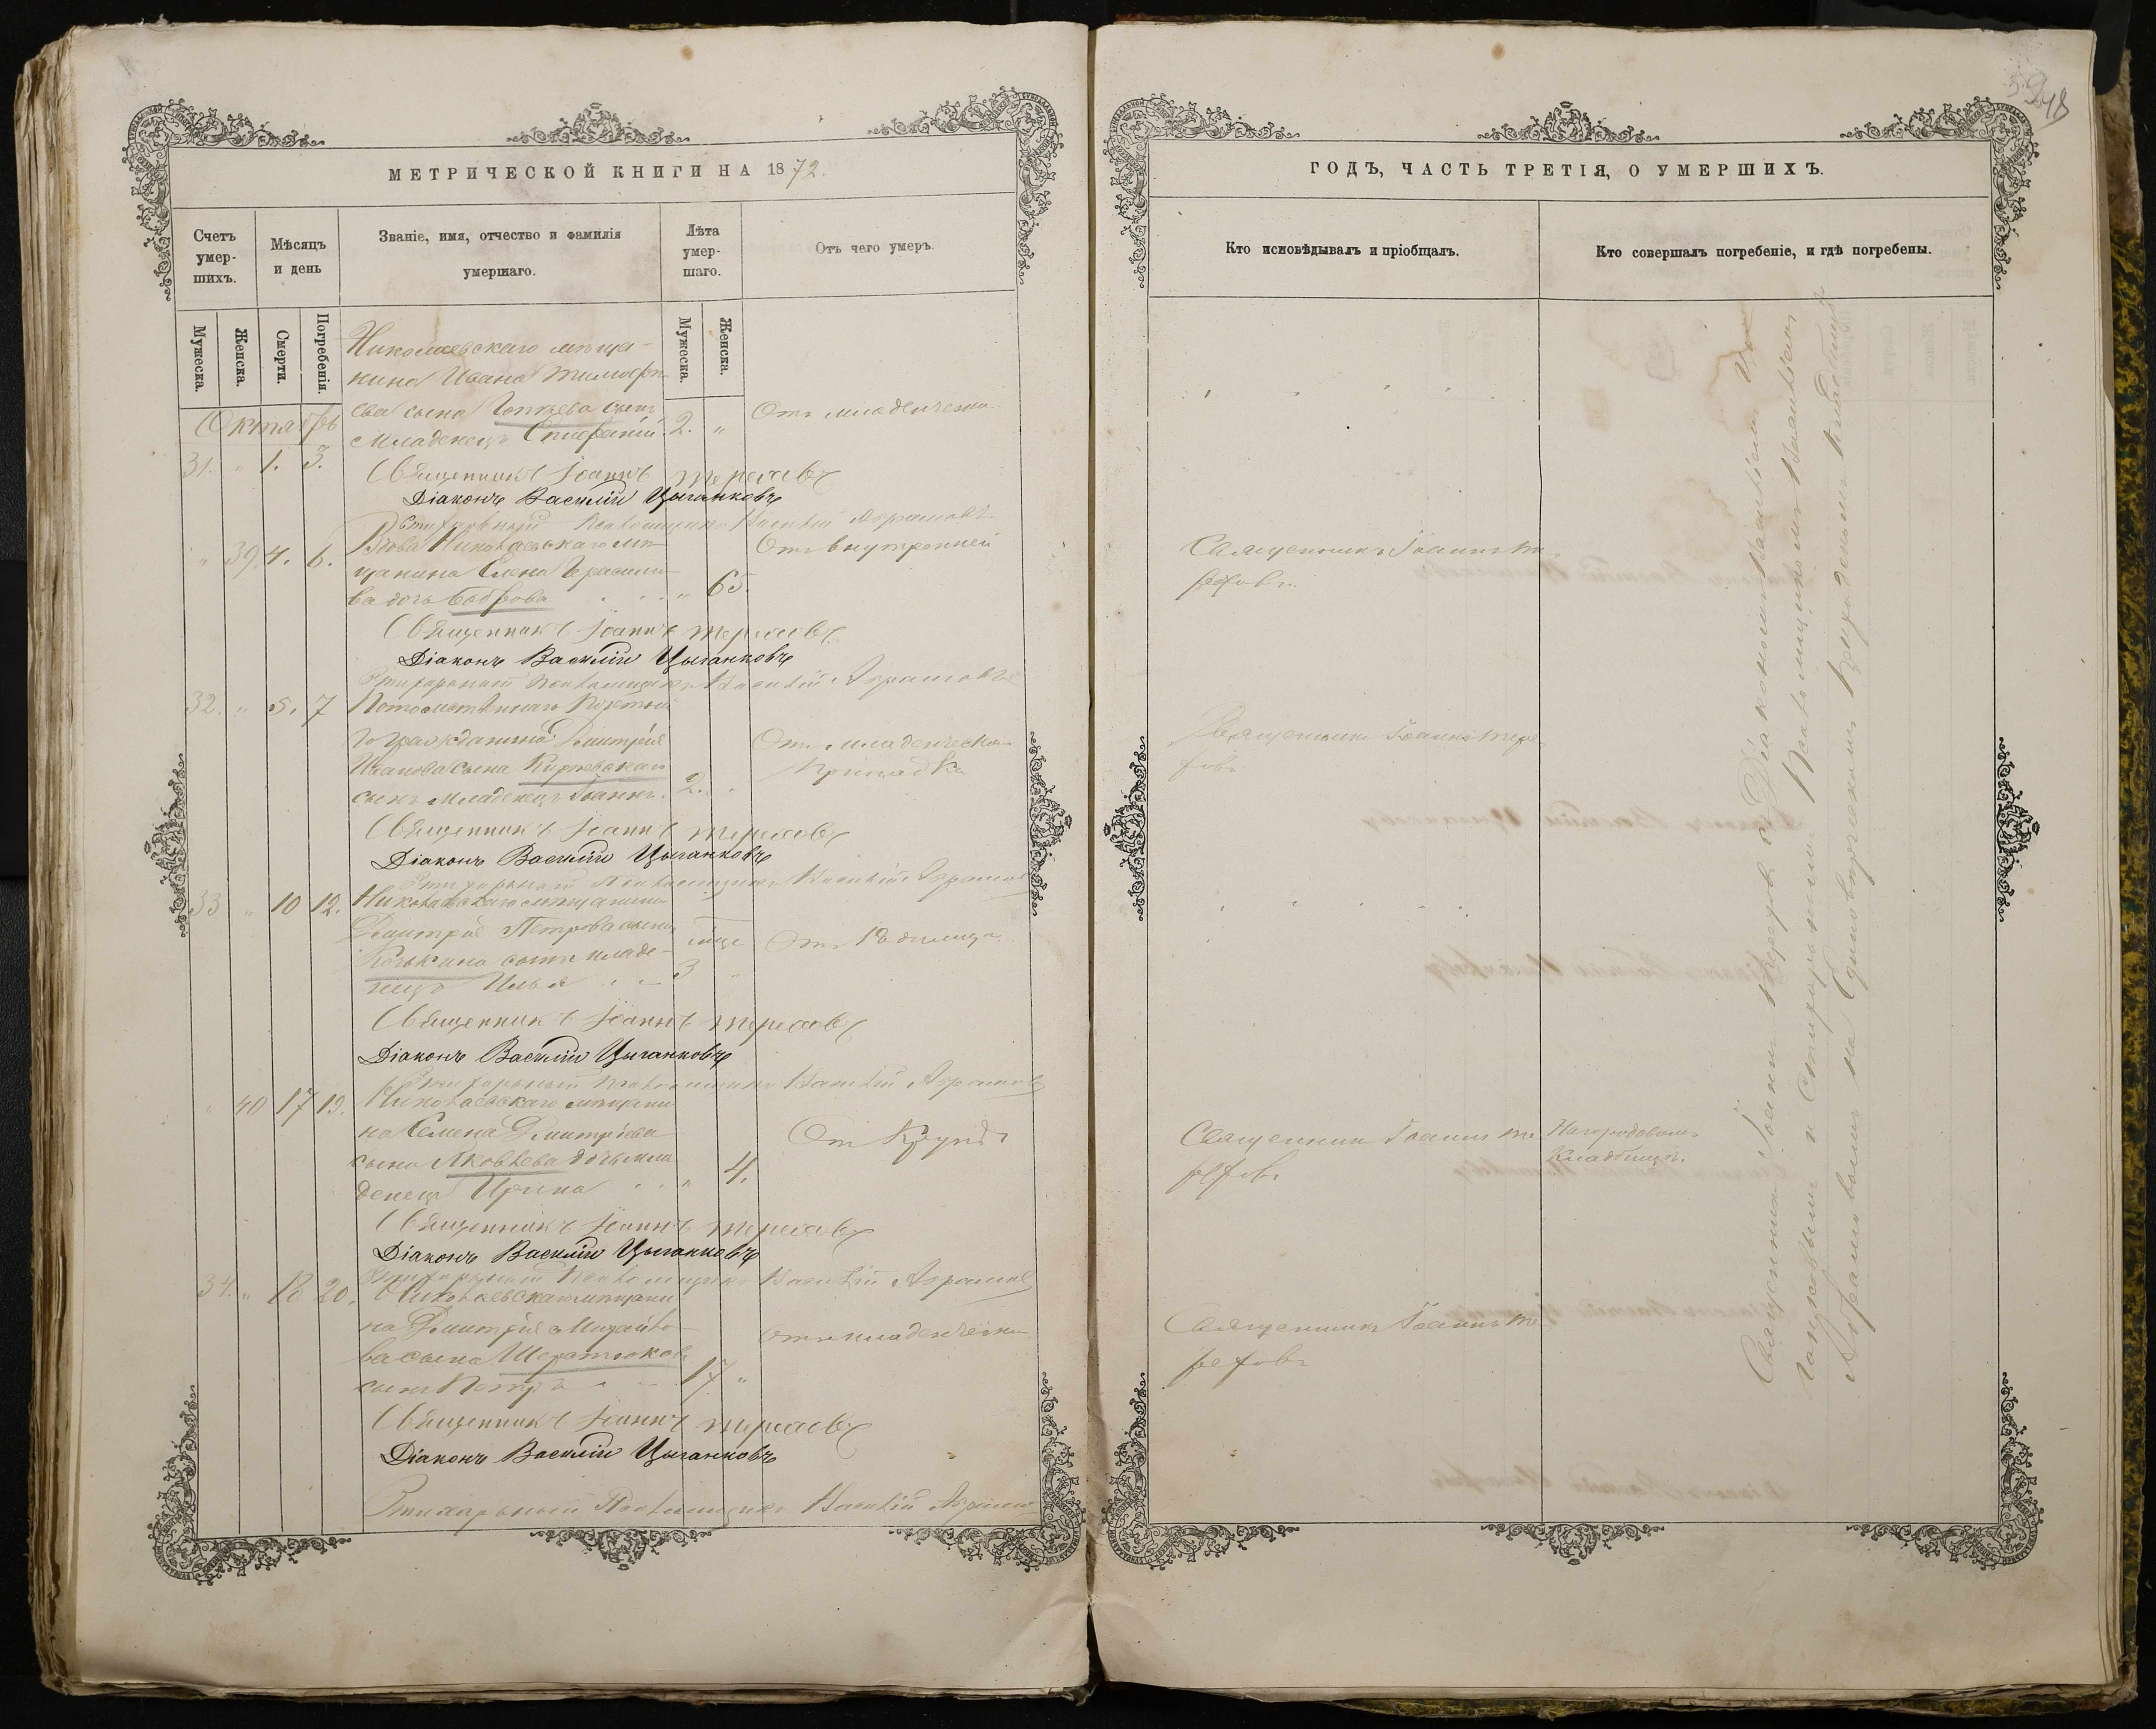 МЕТРИЧЕСКОЙ КНИГИ НА 1872.
Счетъ умер-шихъ.
Мѣсяцъ и день
Званіе, имя, отчество и фамилія умершаго.
Лѣта умер-шаго.
Отъ чего умеръ.
Мужеска.
Женска.
Смерти.
Погребенія.
Мужеска.
Женска.
Николаевскаго мѣща-
нина Ивана Тимофѣ
ева сына сынъ
Младенецъ 2. „
Отъ младенческа
Октябрь
31. „ 1. 3.
Священникъ Іоаннъ Тереховъ
Діаконъ Василій Цыганковъ
Стихарный Псаломщикъ Василій Абрамовъ
„ 39. 4. 6. Вдова Николаевскаго мѣ
щанина Елена Герасимо
ва дочь Боброва „ 65.
Отъ внутренней
Священникъ Іоаннъ Тереховъ
Діаконъ Василій Цыганковъ
Стихарный Псаломщикъ Василій Абрамовъ
32. „ 5. 7 Потомственнаго Почетна
го Гражданина Дмитрія
Иванова сына
сынъ Младенецъ Іоаннъ. 2. „
Отъ Младенческа
припадка
Священникъ Іоаннъ Тереховъ
Діаконъ Василій Цыганковъ
Стихарный Псаломщикъ Василій Абрамовъ
33 „ 10 12. Николаевскаго мѣщанина
Дмитрія Петрова сына
сынъ младе-
нецъ Илья 3 „
Отъ Родимца
Священникъ Іоаннъ Тереховъ
Діаконъ Василій Цыганковъ
Стихарный Псаломщикъ Василій Абрамовъ
„ 40 17 19. Николаевскаго мѣщани
на Семена Дмитріева
сына Яковлева дочь мла
денецъ Ирина „ 4.
Отъ
Священникъ Іоаннъ Тереховъ
Діаконъ Василій Цыганковъ
Стихарный Псаломщикъ Василій Абрамовъ
34. „ 18 20. Николаевскаго мѣщани
на Дмитрія Михайло
ва сына
сынъ Петръ 17 „
Отъ младенческа
Священникъ Іоаннъ Тереховъ
Діаконъ Василій Цыганковъ
Стихарный Псаломщикъ Василій Абрамовъ
ГОДЪ, ЧАСТЬ ТРЕТІЯ, О УМЕРШИХЪ.
Кто исповѣдывалъ и пріобщалъ.
Кто совершалъ погребеніе, и гдѣ погребены.
Священникъ Іоаннъ Те
реховъ
Священникъ Іоаннъ Тере
ховъ
Священникъ Іоаннъ Те
реховъ
На городовомъ
Кладбищѣ.
Священникъ Іоаннъ Те
реховъ
Священникъ Іоаннъ Тереховъ съ Діакономъ Василіемъ Цы
ганковымъ и Стихарнымъ Псаломщикомъ Василіемъ
Абрамовымъ на Единовѣрческомъ кладбищѣ